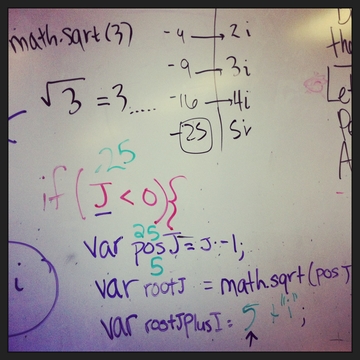 math.sqrt(3)
-4 → 2i
-9 → 3i
√3 = 3.....
-16 → 4i
-25 5i
25
if (J < 0){
25
var posJ = J·-1;
5
var rootJ = math.sqrt(posJ
var rootJplusI = 5 + "i";
i
Let
A